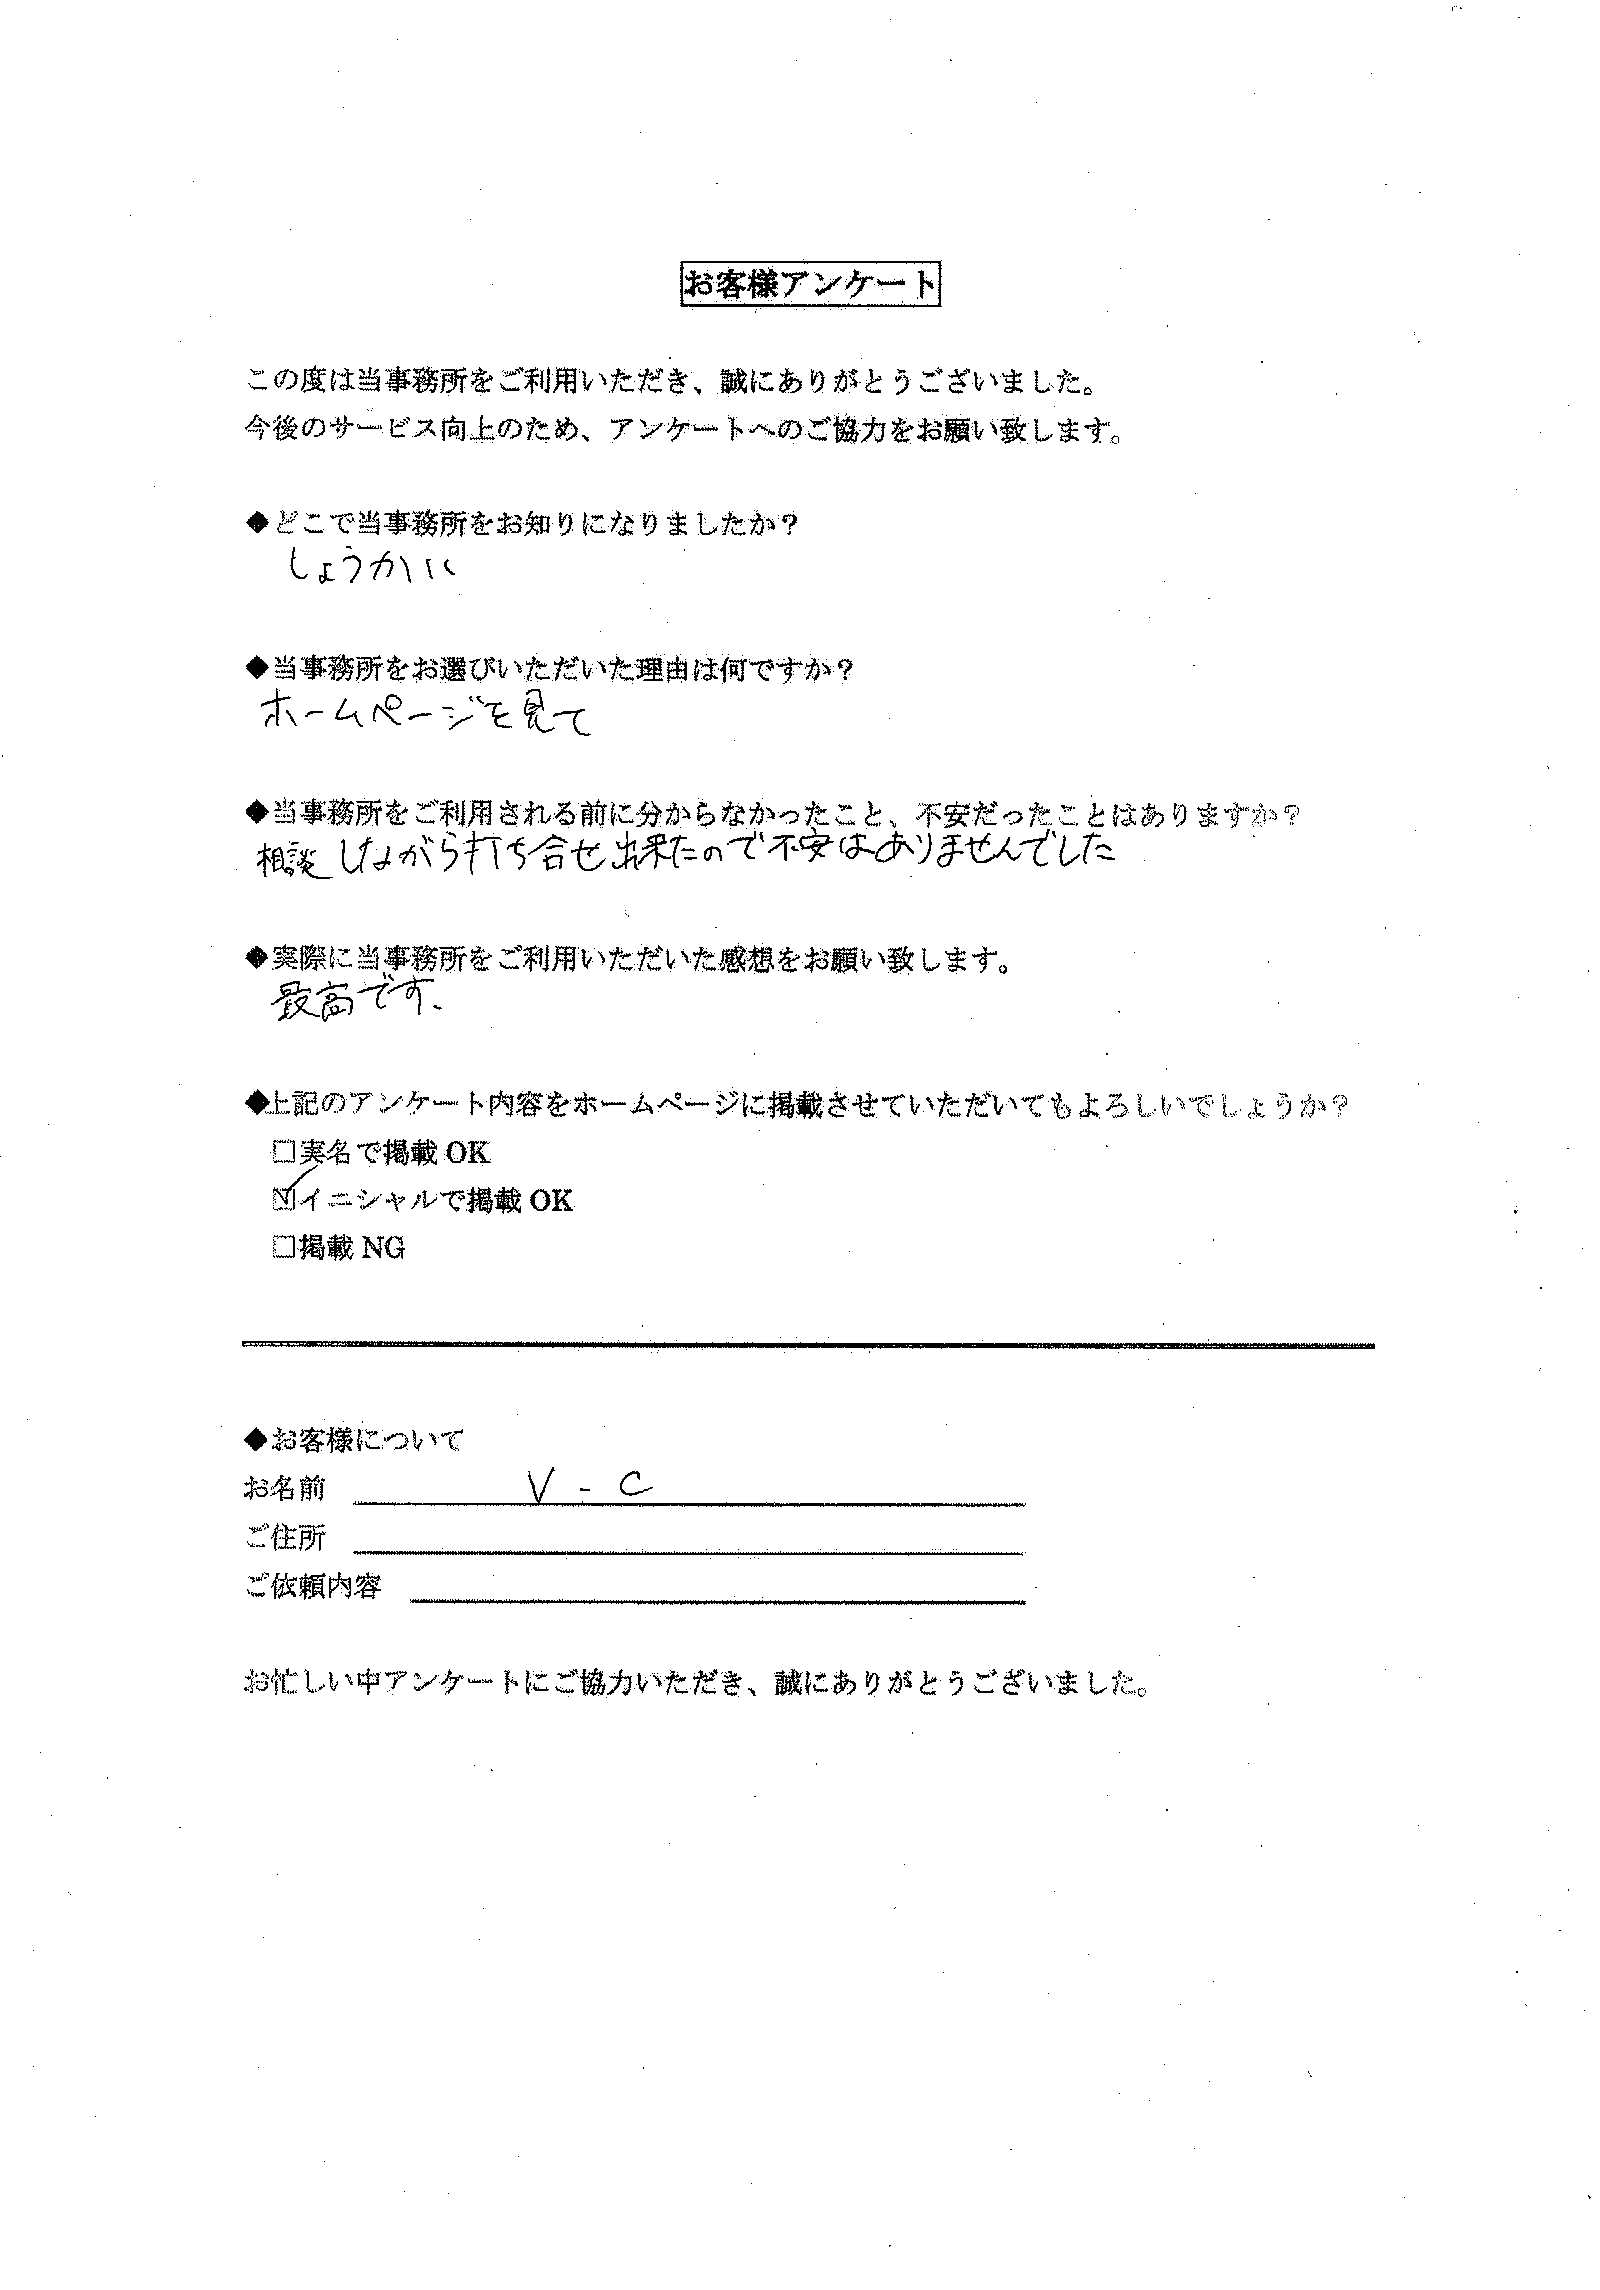 お客様アンケート
この度は当事務所をご利用いただき、誠にありがとうございました。
今後のサービス向上のため、アンケートへのご協力をお願い致します。
◆どこで当事務所をお知りになりましたか？
しょうかい
◆当事務所をお選びいただいた理由は何ですか？
ホームページを見て
◆当事務所をご利用される前に分からなかったこと、不安だったことはありますか？
相談しながら打ち合せ出来たので不安はありませんでした
◆実際に当事務所をご利用いただいた感想をお願い致します。
最高です、
◆上記のアンケート内容をホームページに掲載させていただいてもよろしいでしょうか？
□実名で掲載 OK
☑イニシャルで掲載 OK
□掲載 NG
◆お客様について
お名前 V - C
ご住所
ご依頼内容
お忙しい中アンケートにご協力いただき、誠にありがとうございました。